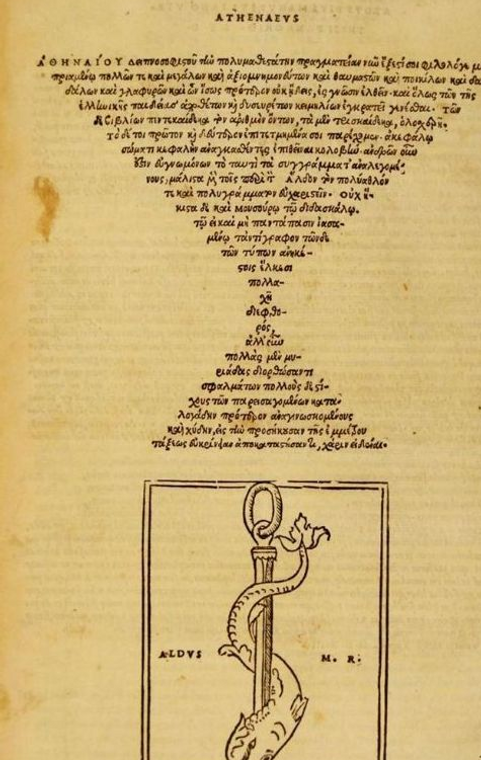 ATHENAEVS
ΑΘΗΝΑΙΟΥ Δειπνοσοφιστοῦ τὴν πολυμαθεστάτην πραγματείαν νῦν ἔξεστί σοι φιλολόγε
πριαμένῳ πολλῶν τε καὶ μεγάλων καὶ ἀξιομνημονεύτων καὶ θαυμαστῶν καὶ ποικίλων καὶ
δάλων καὶ γλαφυρῶν καὶ ὧν ἴσως πρότερον οὐκ ᾔδεις, εἰς γνῶσιν ἐλθεῖν. καὶ ὅλως τῶν τῆς
ἑλληνικῆς παιδείας κειμηλίων ἐγκρατεῖ γενέσθαι. τῶν
βιβλίων πεντεκαίδεκα τὸν ἀριθμὸν ὄντων, τὰ μὲν τρισκαίδεκα, ὁλοσχερῆ.
τὸ δέ τοι πρῶτον καὶ δεύτερον ἐπιτετμημένα σοι παρέχομεν. ἀκεφάλῳ
σώματι κεφαλὴν ἀναγκασθέντες ἐπιθεῖναι κολοβήν. ἀνδρῶν
εὐγνωμόνων τὸ ταυτὶ τὰ συγγράμματ' ἀναλεγομέ-
νους, μάλιστα τοῖς Ἄλδον τὸν πολύαθλον
τε καὶ πολυγράμματον εὐχαριστεῖν. οὐχ ἥ-
κιστα δὲ καὶ Μουσούρῳ τῷ διδασκάλῳ.
τῷ εἰ καὶ μὴ παντάπασιν ἰασα-
μένῳ τἀντίγραφον τῶνδε
τῶν τύπων ἀνηκέ-
στοις ἕλκεσι
πολλα-
χῆ
διεφθο-
ρός,
ἀλλ' οὖν
πολλὰς μὲν μυ-
ριάδας διορθώσαντι
σφαλμάτων πολλοὺς δὲ στί-
χους τῶν παρεισαγομένων κατα-
λογάδην πρότερον ἀναγινωσκομένους
καὶ χύδην, εἰς τὴν προσήκουσαν τῆς ἐμμέτρου
τάξεως εὐκρίνειαν ἀποκαταστήσαντι, χάριν εἰδέναι.
ALDVS M. R.